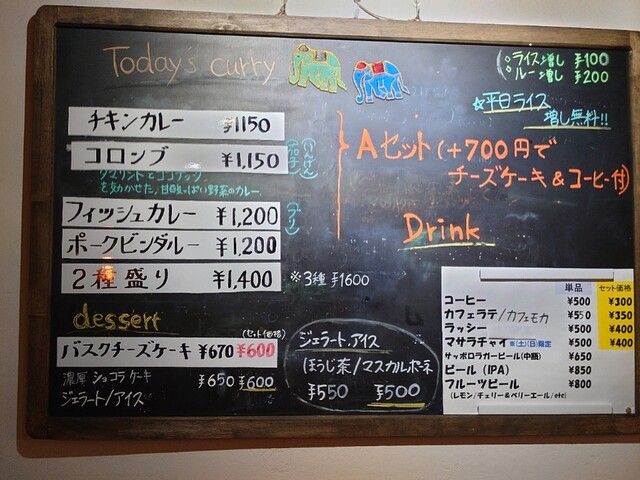 Today's curry
○ライス増し ¥100
○ルー増し ¥200
☆平日ライス
増し無料!!
チキンカレー ¥1150
コロンブ ¥1,150
(いんげん
茄子)
タマリンドとココナッツ
を効かせた、甘酸っぱい野菜のカレー
フィッシュカレー ¥1,200
(ブリ)
ポークビンダルー ¥1,200
2種盛り ¥1,400
※3種 ¥1600
Aセット(+700円で
チーズケーキ&コーヒー付)
Drink
単品 セット価格
コーヒー ¥500 ¥300
カフェラテ/カフェモカ ¥550 ¥350
ラッシー ¥500 ¥400
マサラチャイ ※(土)(日)限定 ¥500 ¥400
サッポロラガービール(中瓶) ¥650
ビール (IPA) ¥850
フルーツビール ¥800
(レモン/チェリー&ベリーエール/etc)
dessert
(セット価格)
バスクチーズケーキ ¥670 ¥600
濃厚ショコラケーキ ¥650 ¥600
ジェラート/アイス
ジェラート、アイス
ほうじ茶/マスカルポーネ
¥550 ¥500